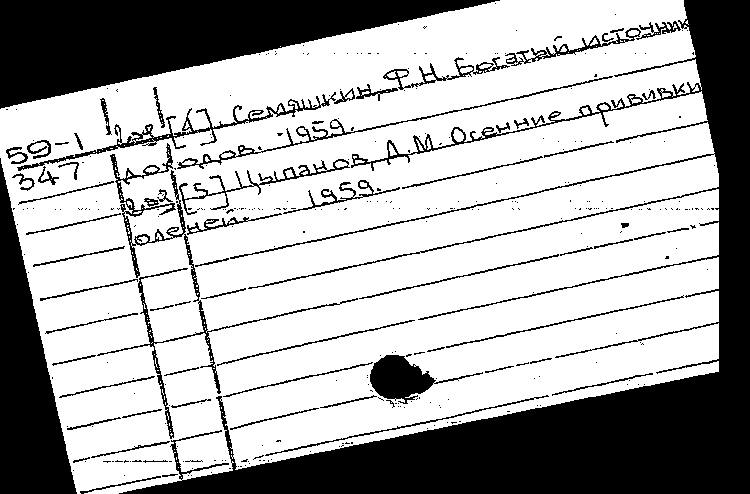 59-1
347
[1]. Семяшкин, Ф.Н. Богатый источник
доходов. 1959.
[5] Цыпанов, Д.М. Осенние прививки
оленей. 1959.